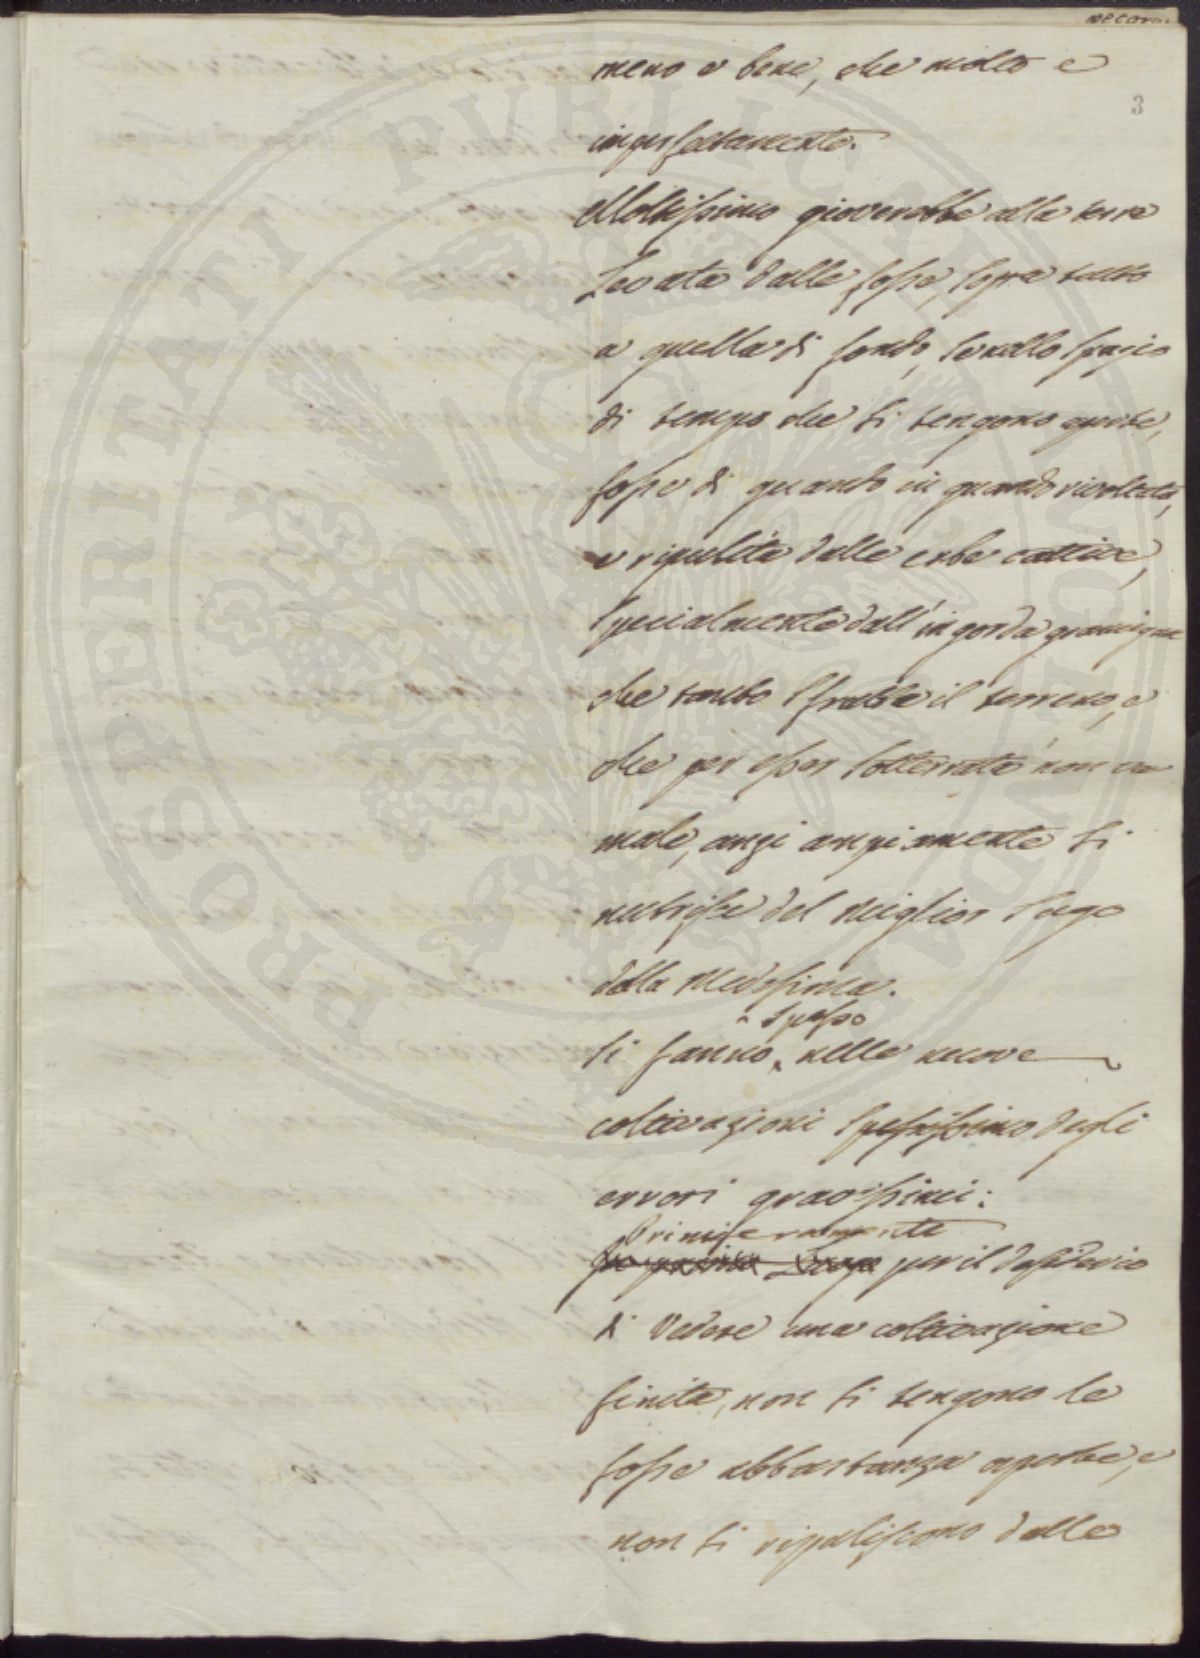 3
meno e bene, che molto e
imperfettamente.
Moltissimo gioverebbe alla terra
Levata dalle fosse, sopra tutto
a quella di fondo, se nello spazio
di tempo che si tengono aperte,
fosse di quando in quando rivoltata,
e ripulita dalle erbe cattive,
specialmente dall'ingorda gramigna
che tanto sfrutta il terreno, e
che per esser sotterrata non va
male, anzi ampiamente si
nutrisce del miglior sugo
della medesima.
spesso
si fanno nelle nuove
coltivazioni spessissimo degli
errori gravissimi:
Primieramente
per il desiderio
di vedere una coltivazione
finita, non si tengono le
fosse abbastanza aperte, e
non si ripuliscono dalle
PROSPERITATI PUBLICAE AUGENDAE